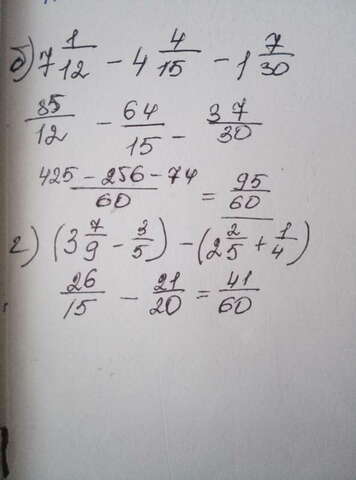 б) 7 1/12 - 4 4/15 - 1 7/30
85/12 - 64/15 - 37/30
(425 - 256 - 74)/60 = 95/60
г) (3 7/9 - 3/5) - (2 2/5 + 1/4)
26/15 - 21/20 = 41/60